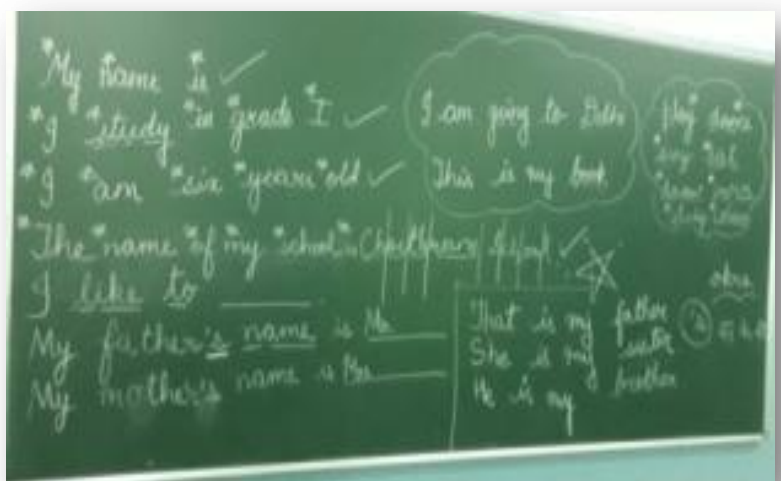 My name is
I study in grade I
I am six years old
The name of my school is
I like to
My father's name is Mr.
My mother's name is Mrs.
I am going to Delhi
This is my book
Play dance
sing eat
draw
study sleep
That is my father
She is my sister
He is my brother
's